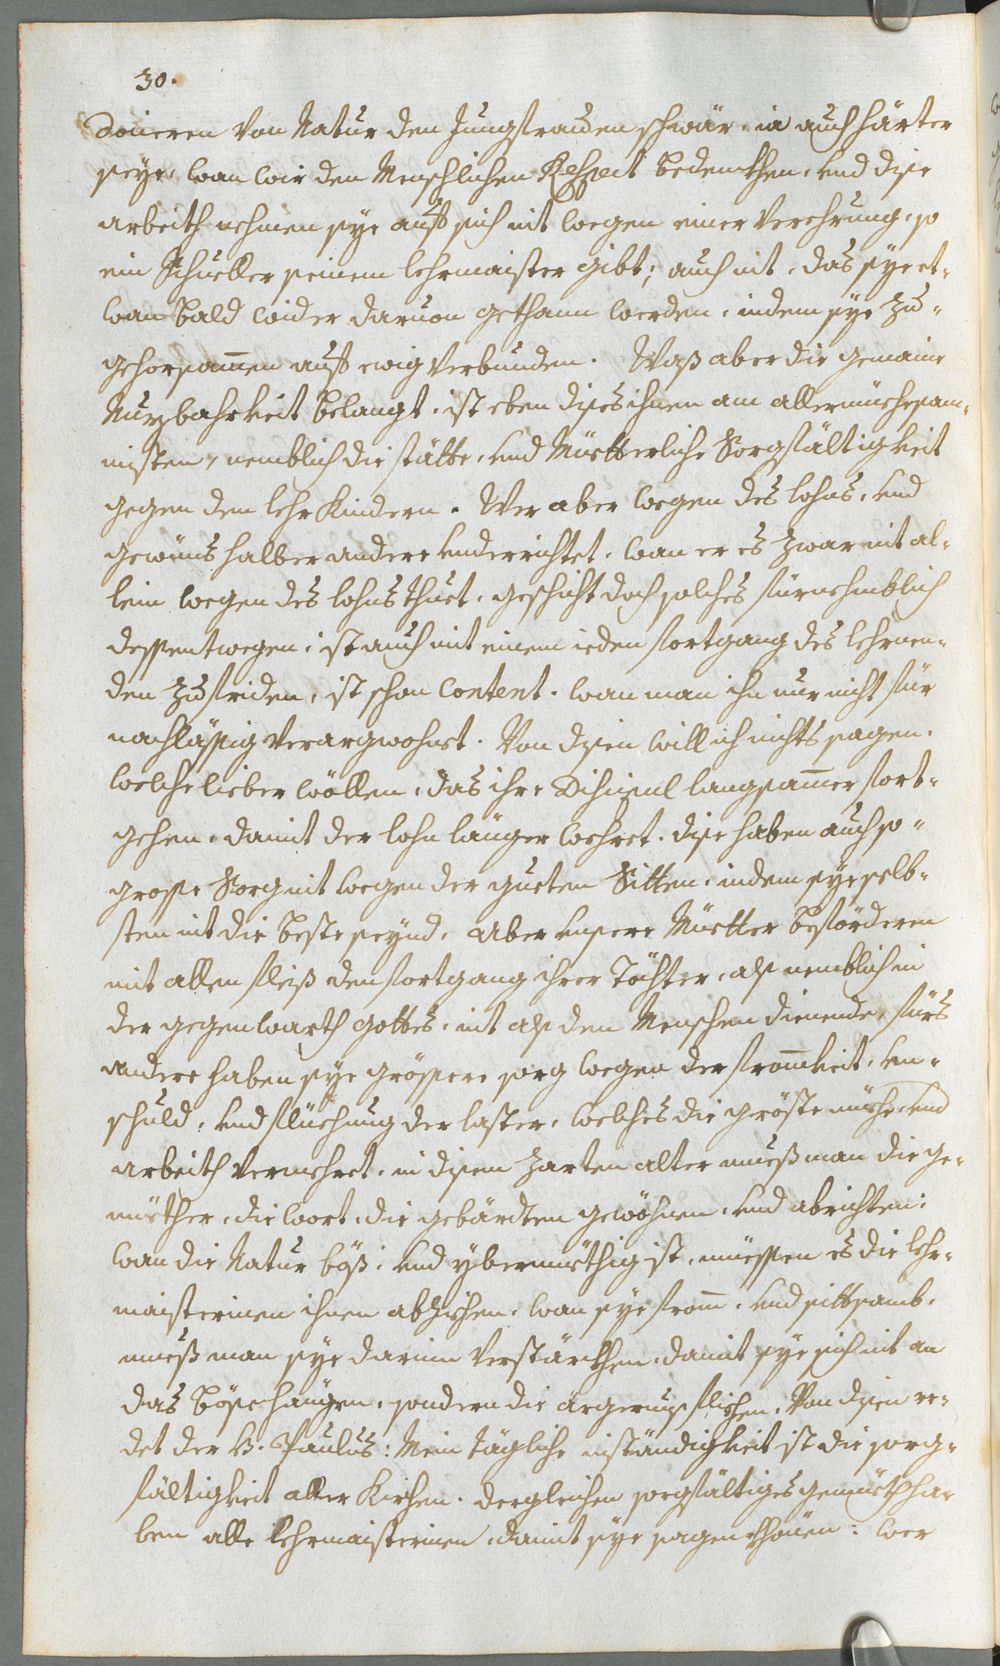 30.
doieren von Natur den Jungfrauen schwär, ia auch härter
seye, wan wir den Menschlichen Respect bedenckhen, und dise
arbeith nehmen sye auff sich nit wegen einer Verehrung, so
ein Schueller seinem lehrmaister gibt; auch nit, das sye et-
wan bald wider daruon gethann werden, indem sye zu-
gehorsammen auff ewig verbunden. Waß aber die gemaine
Nuzbahrkeit belangt, ist eben dises ihnen am allermüehesam-
nisten, nemblich die stätte, und Müetterliche Sorgfältigkeit
gegen den lehr Kindern. Wer aber wegen des lohns, und
gewüns halber andere underrichtet, wan er es zwar nit al-
lein wegen des lohns thuet, geschicht doch solches fürnehmblich
dessentwegen, ist auch mit einem ieden fortgang des lehrnen-
den zufriden, ist schon Content, wan man ihn nur nicht für
nachlässig verargwohnet. Von disen will ich nichts sagen,
welche lieber wöllen, das ihre Discipul langsammer fort-
gehen, damit der lohn länger wehret. dise haben auch so
grosse Sorg nit wegen der gueten Sitten, indem sye selb-
sten nit die beste seynd. Aber unsere Müetter beförderen
mit allem fleiß den fortgang ihrer Töchter, alß nemblich in
der gegenwarth Gottes, nit alß den Menschen dienende, fürs
andere haben sye grössere sorg wegen der frommkeit, un-
schuld, und flüchung der laster, welches die gröste müehe und
arbeith vermehret, in disem zarten alter mueß man die ge-
müether, die wort, die gebärdten gewöhnen, und abrichten:
wan die Natur böß, und ybermüethig ist, müessen es die lehr-
maisterinen ihnen abziehen, wan sye fromm, und sittsamb,
mueß man sye darinn verstärckhen, damit sye sich nit an
das böse hangen, sondern die ärgernuß fliehen. Von disen re-
det der H. Paulus: Mein tägliche inständigkeit ist die sorg-
fältigkeit aller Kirchen. dergleichen sorgfältiges gemüeth ha-
ben alle lehrmaisterinen, damit sye sagen khönen: wer